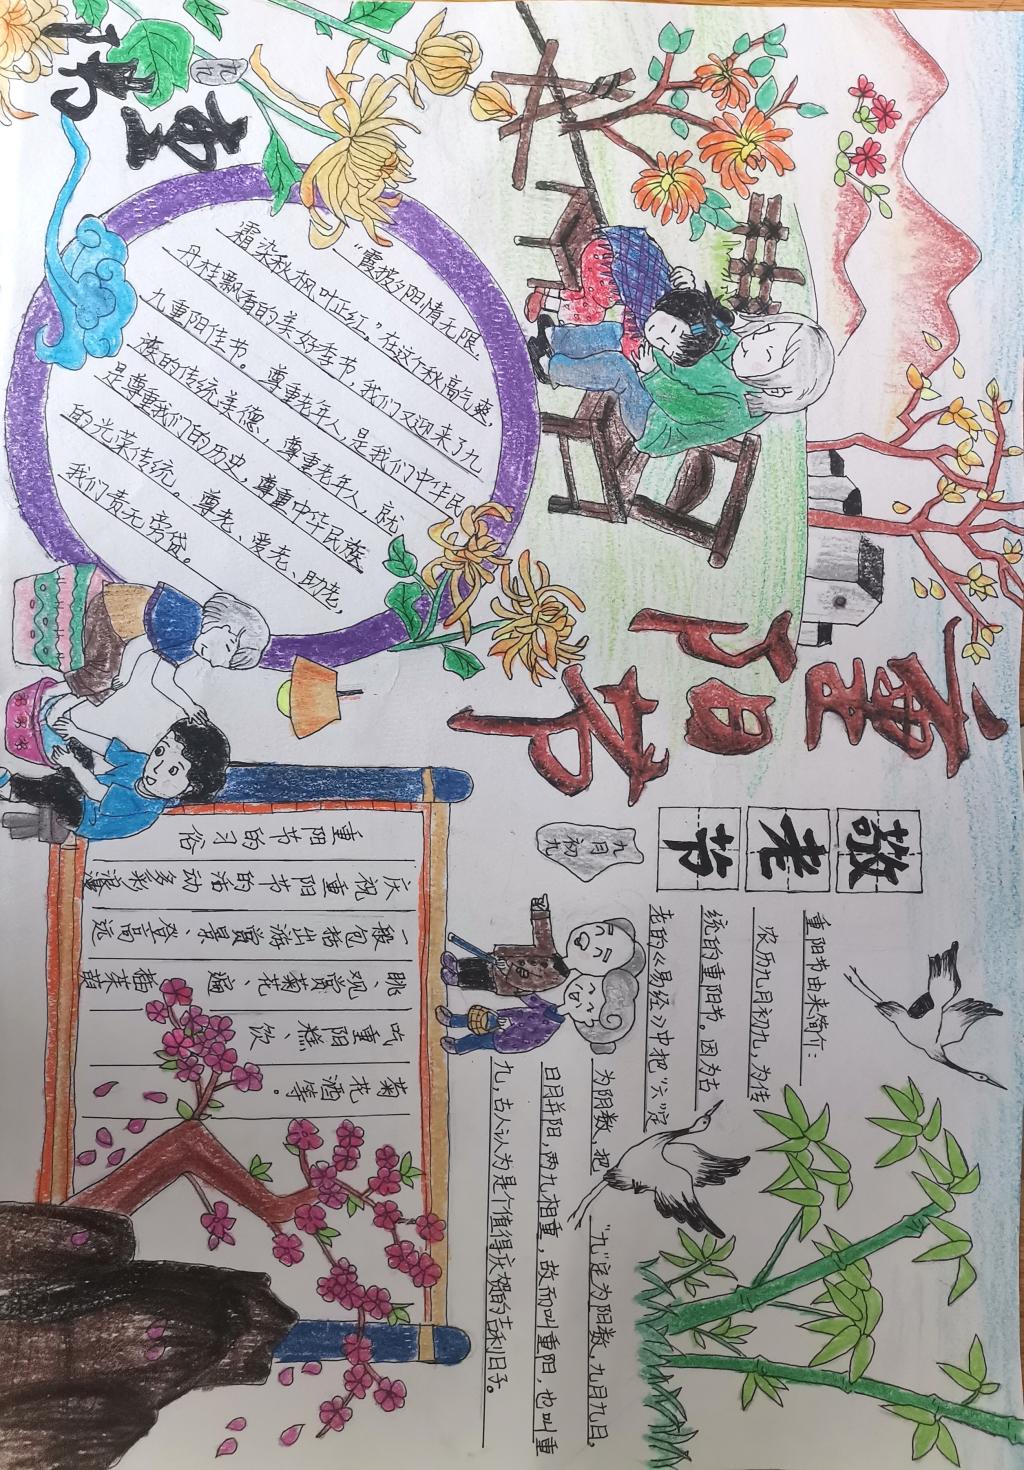 重阳节
敬老节
九月初九
重阳节由来简介:
农历九月初九,为传
统的重阳节。因为古
老的《易经》中把“六”定
为阴数,把“九”定为阳数,九月九日,
日月并阳,两九相重,故而叫重阳,也叫重
九,古人认为是个值得庆贺的吉利日子。
重陽
“霞披夕阳情无限
霜染秋枫叶正红。”在这个秋高气爽,
丹桂飘香的美好季节,我们又迎来了九
九重阳佳节。尊重老年人,是我们中华民
族的传统美德,尊重老年人,就
是尊重我们的历史,尊重中华民族
的光荣传统。尊老、爱老、助老,
我们责无旁贷。
重阳节的习俗
庆祝重阳节的活动多彩浪漫
一般包括出游赏景、登高远
眺、观赏菊花、遍插茱萸
吃重阳糕、饮
菊花酒等。